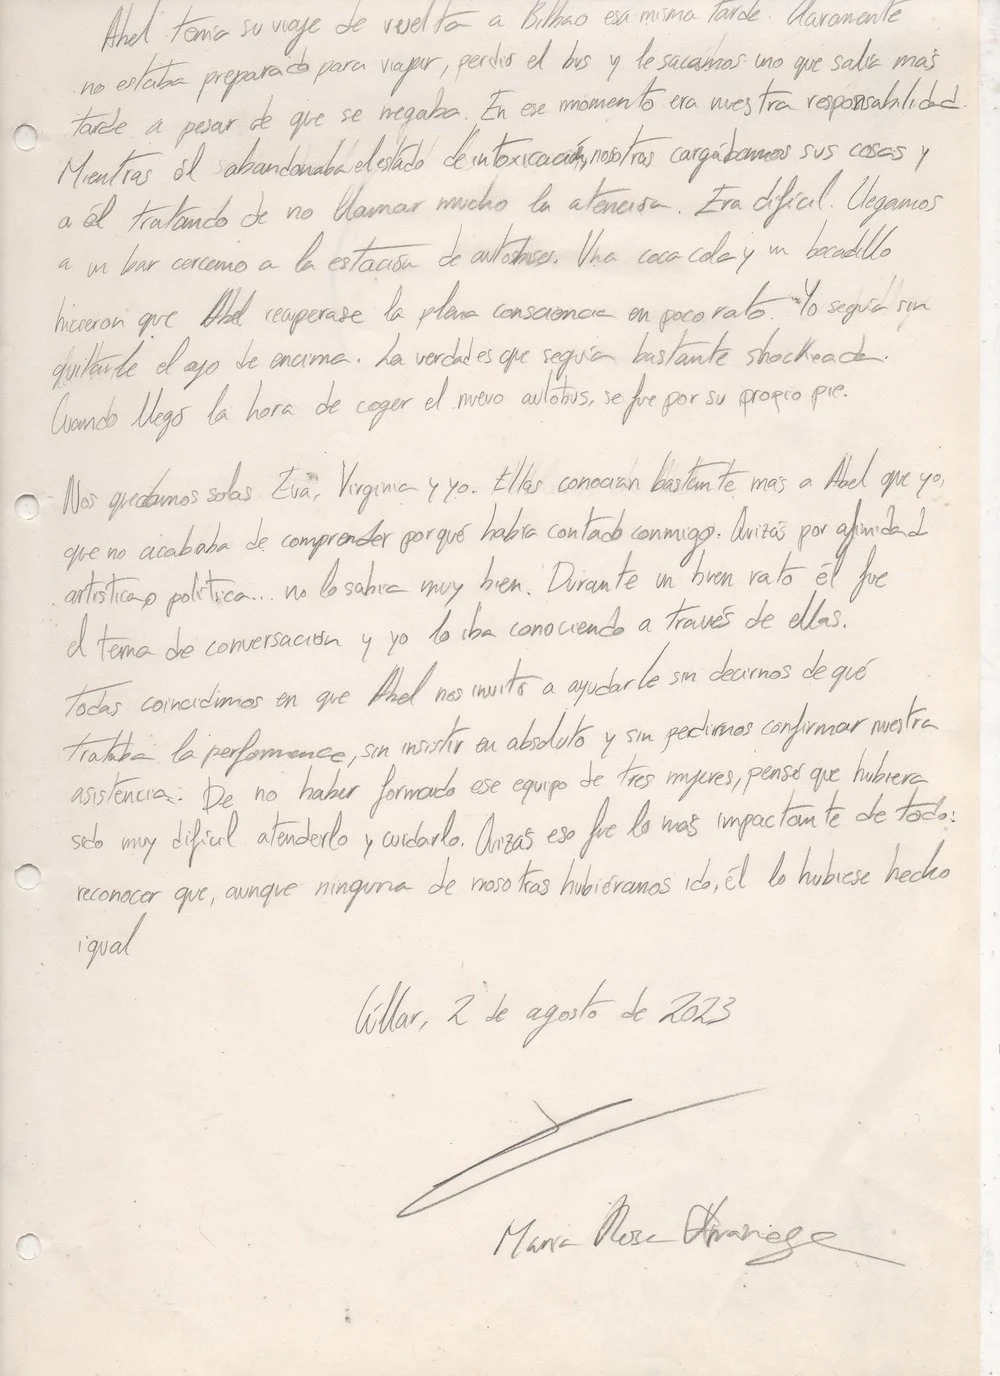 Abel tenía su viaje de vuelta a Bilbao esa misma tarde. Claramente
no estaba preparado para viajar, perdió el bus y le sacamos uno que salía más
tarde a pesar de que se negaba. En ese momento era nuestra responsabilidad.
Mientras él abandonaba el estado de intoxicación, nosotras cargábamos sus cosas y
a él tratando de no llamar mucho la atención. Era difícil. Llegamos
a un bar cercano a la estación de autobuses. Una coca cola y un bocadillo
hicieron que Abel recuperase la plena consciencia en poco rato. Yo seguía sin
quitarle el ojo de encima. La verdad es que seguía bastante shockeada.
Cuando llegó la hora de coger el nuevo autobús, se fue por su propio pie.
Nos quedamos solas Eva, Virginia y yo. Ellas conocían bastante más a Abel que yo,
que no acababa de comprender porqué había contado conmigo. Quizás por afinidad
artística o política... no lo sabía muy bien. Durante un buen rato él fue
el tema de conversación y yo lo iba conociendo a través de ellas.
Todas coincidimos en que Abel nos invitó a ayudarle sin decirnos de qué
trataba la performance, sin insistir en absoluto y sin pedirnos confirmar nuestra
asistencia. De no haber formado ese equipo de tres mujeres, pensé que hubiera
sido muy difícil atenderlo y cuidarlo. Quizás eso fue lo más impactante de todo:
reconocer que, aunque ninguna de nosotras hubiéramos ido, él lo hubiese hecho
igual
Cúllar, 2 de agosto de 2023
María Rosa